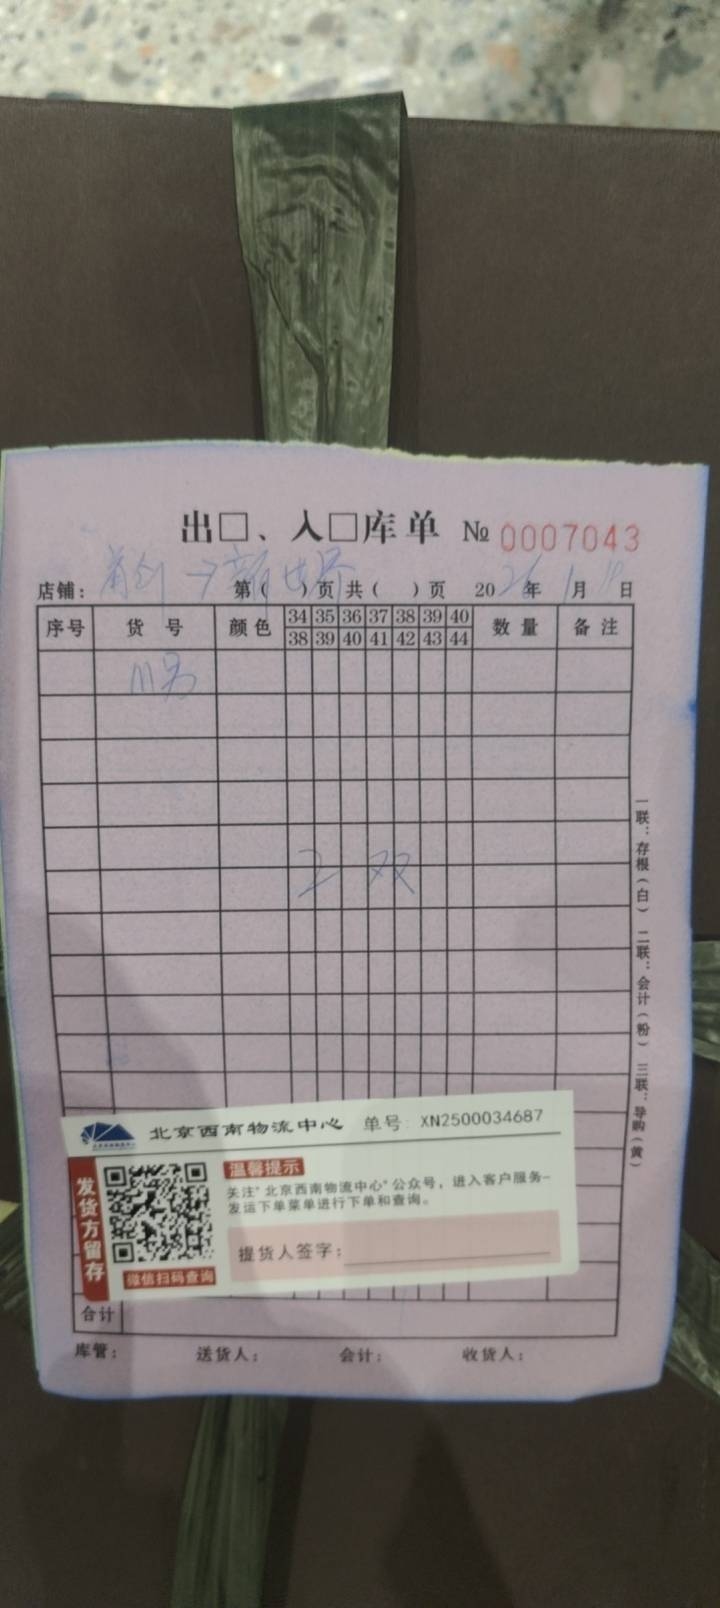 出□、入□库单 № 0007043
店铺: → 新世界 第( )页 共( )页 2026年1月 日
序号 货号 颜色 34 35 36 37 38 39 40 数量 备注
38 39 40 41 42 43 44
11号
2双
一联：存根(白) 二联：会计(粉) 三联：导购(黄)
北京西南物流中心 单号: XN2500034687
发货方留存
温馨提示
关注"北京西南物流中心"公众号，进入客户服务-
发运下单菜单进行下单和查询。
提货人签字:
微信扫码查询
合计
库管: 送货人: 会计: 收货人: